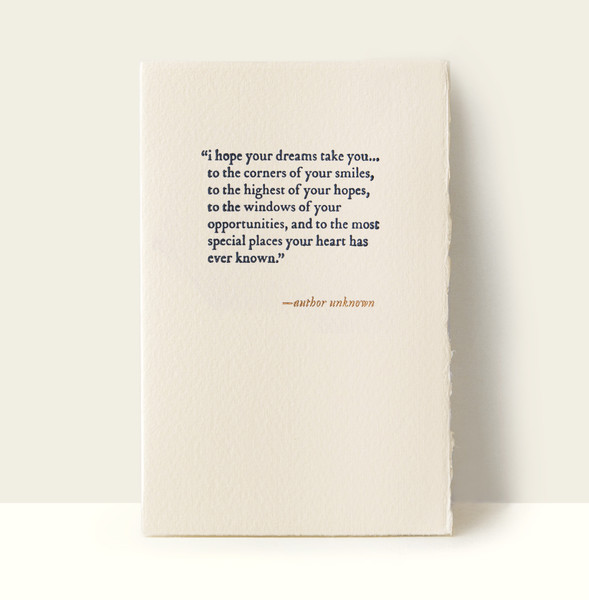 “i hope your dreams take you...
to the corners of your smiles,
to the highest of your hopes,
to the windows of your
opportunities, and to the most
special places your heart has
ever known.”
—author unknown